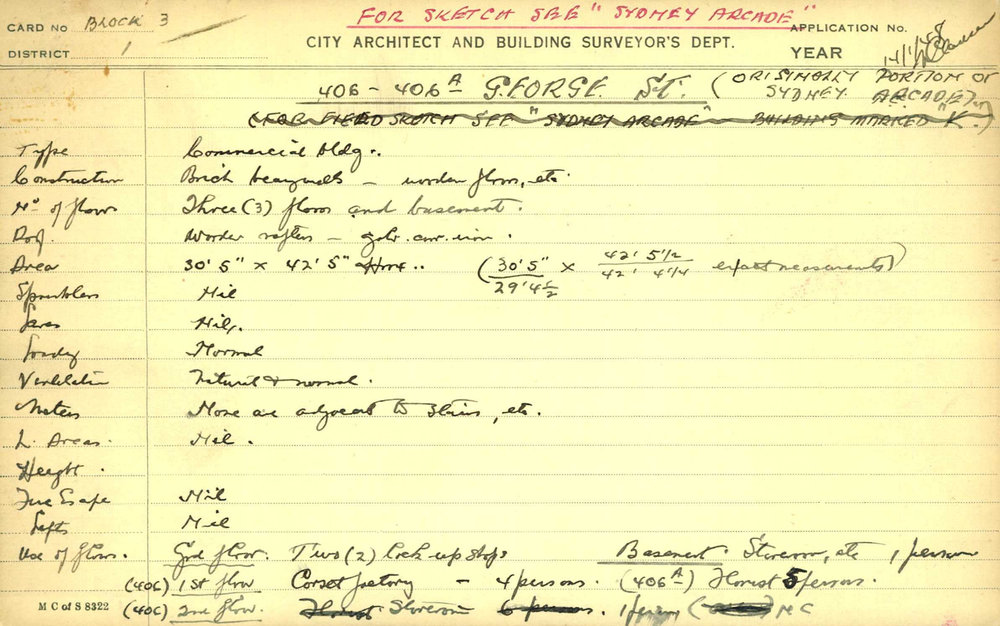 FOR SKETCH SEE "SYDNEY ARCADE"
CARD No BLOCK 3
APPLICATION No.
DISTRICT 1
CITY ARCHITECT AND BUILDING SURVEYOR'S DEPT.
YEAR
14/1/48
406 - 406A GEORGE ST. (ORIGINALLY PORTION OF SYDNEY ARCADE)
(FOR FIELD SKETCH SEE "SYDNEY ARCADE" BUILDING MARKED "K".)
Type Commercial bldg.
Construction Brick - wooden floors, etc
No of floors Three (3) floors and basement.
Roof. Wooden rafters - galv. corr. iron.
Area 30' 5" x 42' 5" (30' 5" / 29' 4½ x 42' 5½ / 42' 4¼ exact measurements)
Sprinklers Nil
Nil.
Normal
Ventilation Natural & normal.
Meters None are adjacent to stairs, etc.
L. Areas. Nil.
Height.
Fire Escape Nil
Lifts Nil
Use of floors. Grd floor. Two (2) lock-up shops Basement. Storeroom, etc 1 person
(406) 1st floor Corset factory - 4 persons. (406A) Florist 5 persons.
(406) 2nd floor. Florist Storeroom 6 persons. 1 person
M C of S 8322